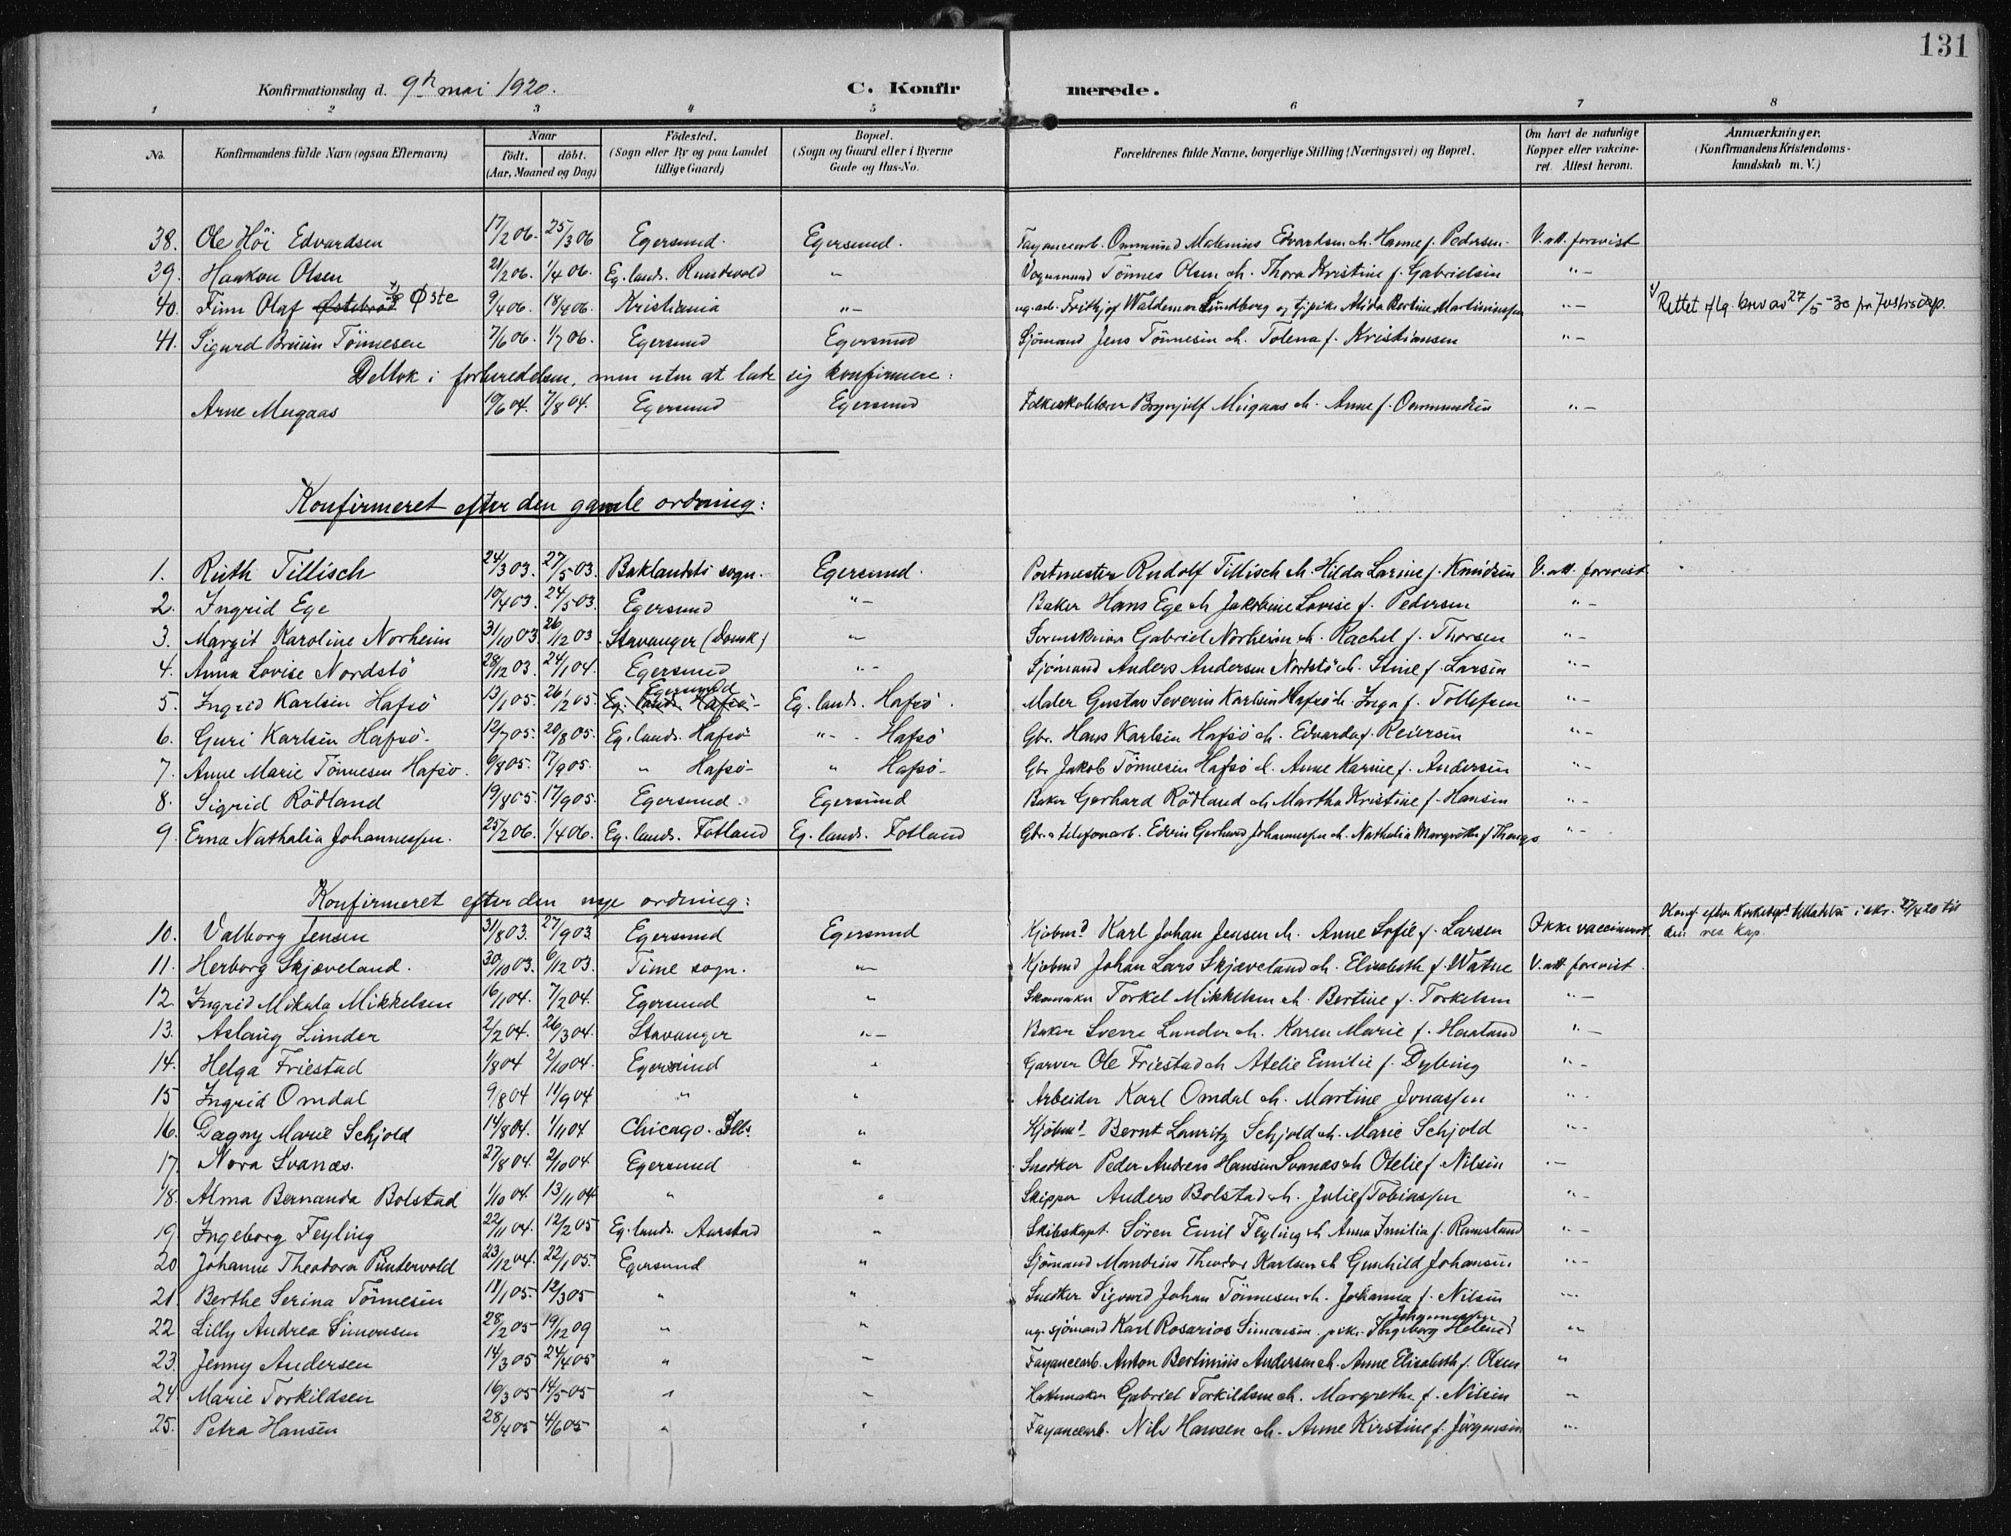 131
Konfirmationsdag d. 9de mai 1920. C. Konfirmerede.
1 2 3 4 5 6 7 8
No. Konfirmandens fulde Navn (ogsaa Efternavn) Naar født, døbt. (Aar, Maaned og Dag) Fødested. (Sogn eller By og paa Landet tillige Gaard) Bopæl. (Sogn og Gaard eller i Byerne Gade og Hus-No. Forældrenes fulde Navne, borgerlige Stilling (Næringsvei) og Bopæl. Om havt de naturlige Kopper eller vakcineret. Attest herom. Anmærkninger. (Konfirmandens Kristendomskundskab m. V.)
38. Ole Höi Edvardsen 17/2 06. 25/3 06 Egersund. Egersund. Fayancearb. Ommund Maknius Edvardsen og h. Hanne f. Pedersen. V. att. forevist
39. Haakon Olsen 21/2 06. 1/4 06. Eg. lands. Rundevold " Vognmand Tönnes Olsen og h. Thora Kristine f. Gabrielsen "
40. Finn Olaf Østebrød 1) Øste 9/4 06. 18/4 06. Kristiania " ug. arb. Frithjof Waldemar Lundberg og Alida Bertine Martiniussen " 1) Rettet iflg. brev av 27/5-30 fra Justisdep.
41. Sigurd Bruun Tönnesen 7/6 06. 1/7 06. Egersund Egersund Sjömand Jens Tönnesen og h. Tolena f. Kristiansen "
Deltok i forberedelsen, men uten at late sig konfirmere:
Arne Mugaas 19/6 04. 7/8 04. Egersund Egersund Folkeskolelærer Brynjulf Mugaas og h. Anne f. Ommundsen "
Konfirmeret efter den gamle ordning:
1. Ruth Tillisch 24/3 03. 27/5 03. Baklandets sogn. Egersund. Postmester Rudolf Tillisch og h. Hilda Larine f. Knudsen V. att. forevist
2. Ingrid Ege 10/4 03. 24/5 03. Egersund " Baker Hans Ege og h. Jakobine Lovise f. Pedersen "
3. Margit Karoline Norheim 31/10 03 26/12 03. Stavanger (Domk) " Sorenskriver Gabriel Norheim og h. Rachel f. Thorsen "
4. Anna Lovise Nordstö 28/12 03. 24/1 04. Egersund " Sjömand Anders Andersen Nordstö og h. Stine f. Larsen "
5. Ingrid Karlsen Hafsö 13/1 05. 26/2 05. Egersund Eg. lands. Hafsö Eg. lands. Hafsö. Maler Gustav Severin Karlsen Hafsö og h. Inga f. Tollefsen "
6. Guri Karlsen Hafsö 12/7 05. 20/8 05. Eg. lands. Hafsö " Hafsö Gbr. Hans Karlsen Hafsö og h. Edvarda f. Reiersen "
7. Anne Marie Tönnesen Hafsö. 6/8 05. 17/9 05. " Hafsö " Hafsö Gbr. Jakob Tönnesen Hafsö og h. Anne Karine f. Andersen "
8. Sigrid Rödland 19/8 05. 17/9 05. Egersund. Egersund Baker Gerhard Rödland og h. Martha Kristine f. Hansen "
9. Erna Nathalia Johannessen. 25/2 06. 1/4 06. Eg. lands. Fotland Eg. lands. Fotland Gbr. & telefonarb. Edvin Gerhard Johannessen og h. Nathalia Margrethe f. Thengs "
Konfirmeret efter den nye ordning:
10. Valborg Jensen 31/8 03. 27/9 03 Egersund Egersund Kjöbmd Karl Johan Jensen og h. Anne Sofie f. Larsen Ikke vaccineret. Konf. efter Kirkedepts tilladelse i skr. 27/4 20 til den res. kap.
11. Herborg Skjæveland. 30/10 03. 6/12 03. Time sogn. " Kjöbmd Johan Lars Skjæveland og h. Elisabeth f. Watne V. att. forevist.
12. Ingrid Mikala Mikkelsen 16/1 04. 7/2 04. Egersund " Skomaker Torkel Mikkelsen og h. Bertine f. Torkelsen "
13. Aslaug Lunder 2/2 04. 26/3 04. Stavanger " Baker Sverre Lunder og h. Karen Marie f. Haaland "
14. Helga Friestad 1/8 04 2/10 04. Egersund " Garver Ole Friestad og h. Atelie Emilie f. Dybing "
15. Ingrid Omdal 9/8 04 11/9 04 " " Arbeider Karl Omdal og h. Martine Jonassen "
16. Dagny Marie Schjold 14/8 04. 1/11 04 Chicago. Ills. " Kjöbmd Bernt Lauritz Schjold og h. Marie Schjold "
17. Nora Svanæs. 27/8 04. 2/10 04 Egersund " Snedker Peder Andreas Hansen Svanæs og h. Otelie f. Nilsen "
18. Alma Bernanda Bolstad 1/10 04. 13/11 04. " " Skipper Anders Bolstad og h. Julie f. Tobiassen "
19. Ingeborg Feyling 22/11 04. 12/2 05 Eg. lands. Aarstad " Skibskapt. Sören Emil Feyling og h. Anna Emilia f. Ramsland "
20. Johanne Theodora Puntervold 23/12 04. 22/1 05. Egersund " Sjömand Mandius Theodor Karlsen og h. Gunhild Johansen "
21. Berthe Serina Tönnesen 11/1 05. 12/3 05 " " Snedker Sigvard Johan Tönnesen og h. Johanna f. Nilsen "
22. Lilly Andrea Simonsen 28/2 05 19/12 09 " " ug. sjömand Karl Rosarios Simonsen. pike Ingeborg Helene Johannessen "
23. Jenny Andersen 14/3 05 24/4 05 " " Fayancearb. Anton Bertinius Andersen og h. Anne Elisabeth f. Olsen "
24. Marie Torkildsen 16/3 05 14/5 05 " " Hattemaker Gabriel Torkildsen og h. Margrethe f. Nilsen "
25. Petra Hansen 28/4 05 4/6 05 " " Fayancearb. Nils Hansen og h. Anne Kirstine f. Jörgensen "